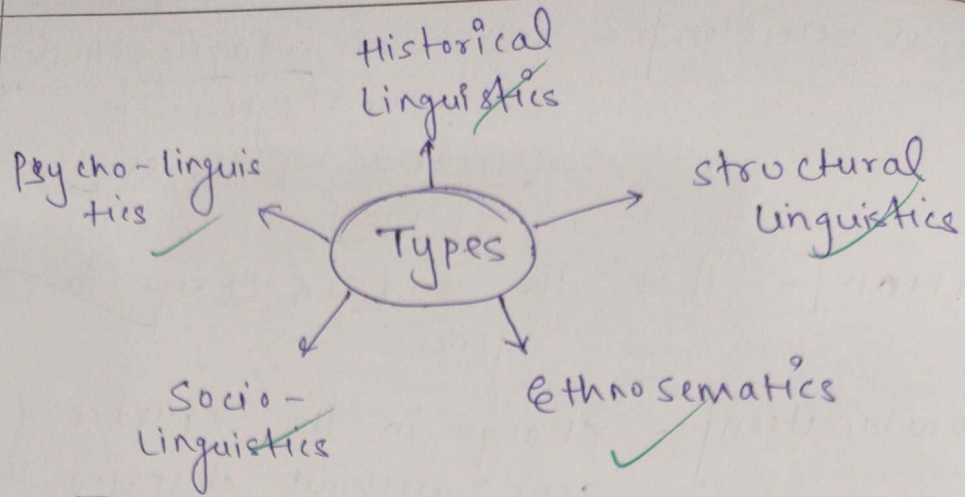 Historical
Linguistics
Psycho-linguis
tics
structural
Linguistics
Types
Socio-
Linguistics
Ethnosematics